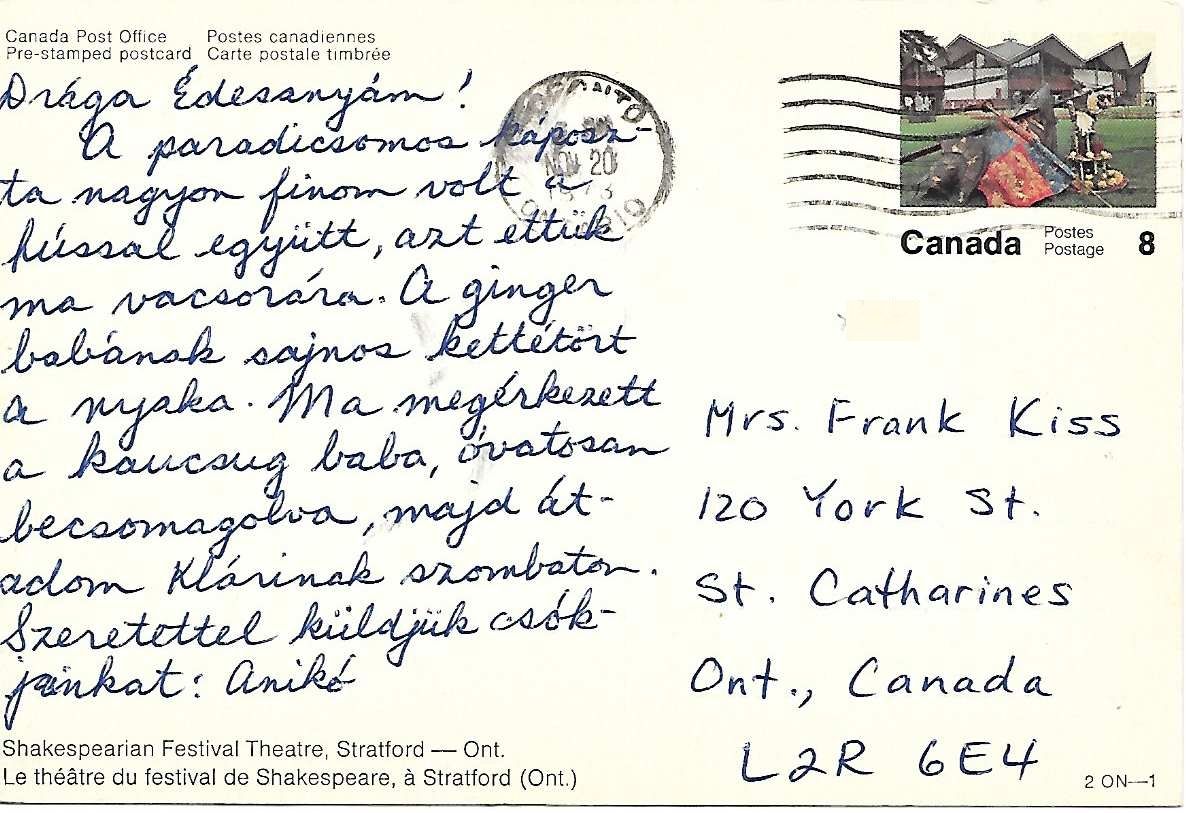 Canada Post Office Postes canadiennes
Pre-stamped postcard Carte postale timbrée
Drága Édesanyám!
A paradicsomos káposz-
ta nagyon finom volt a
hússal együtt, azt ettük
ma vacsorára. A ginger
babának sajnos kettétört
a nyaka. Ma megérkezett
a kaucsug baba, óvatosan
becsomagolva, majd át-
adom Klárinak szombaton.
Szeretettel küldjük csók-
jainkat: Anikó
Shakespearian Festival Theatre, Stratford — Ont.
Le théâtre du festival de Shakespeare, à Stratford (Ont.)
TORONTO
NOV 20
1973
ONTARIO
Canada Postes
Postage 8
Mrs. Frank Kiss
120 York St.
St. Catharines
Ont., Canada
L2R 6E4
2 ON—1